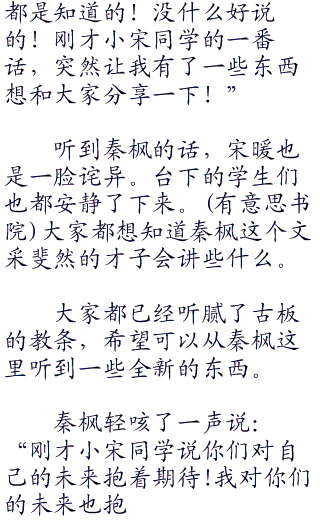 都是知道的！没什么好说
的！刚才小宋同学的一番
话，突然让我有了一些东西
想和大家分享一下！”
听到秦枫的话，宋暖也
是一脸诧异。台下的学生们
也都安静了下来。(有意思书
院)大家都想知道秦枫这个文
采斐然的才子会讲些什么。
大家都已经听腻了古板
的教条，希望可以从秦枫这
里听到一些全新的东西。
秦枫轻咳了一声说：
“刚才小宋同学说你们对自
己的未来抱着期待!我对你们
的未来也抱